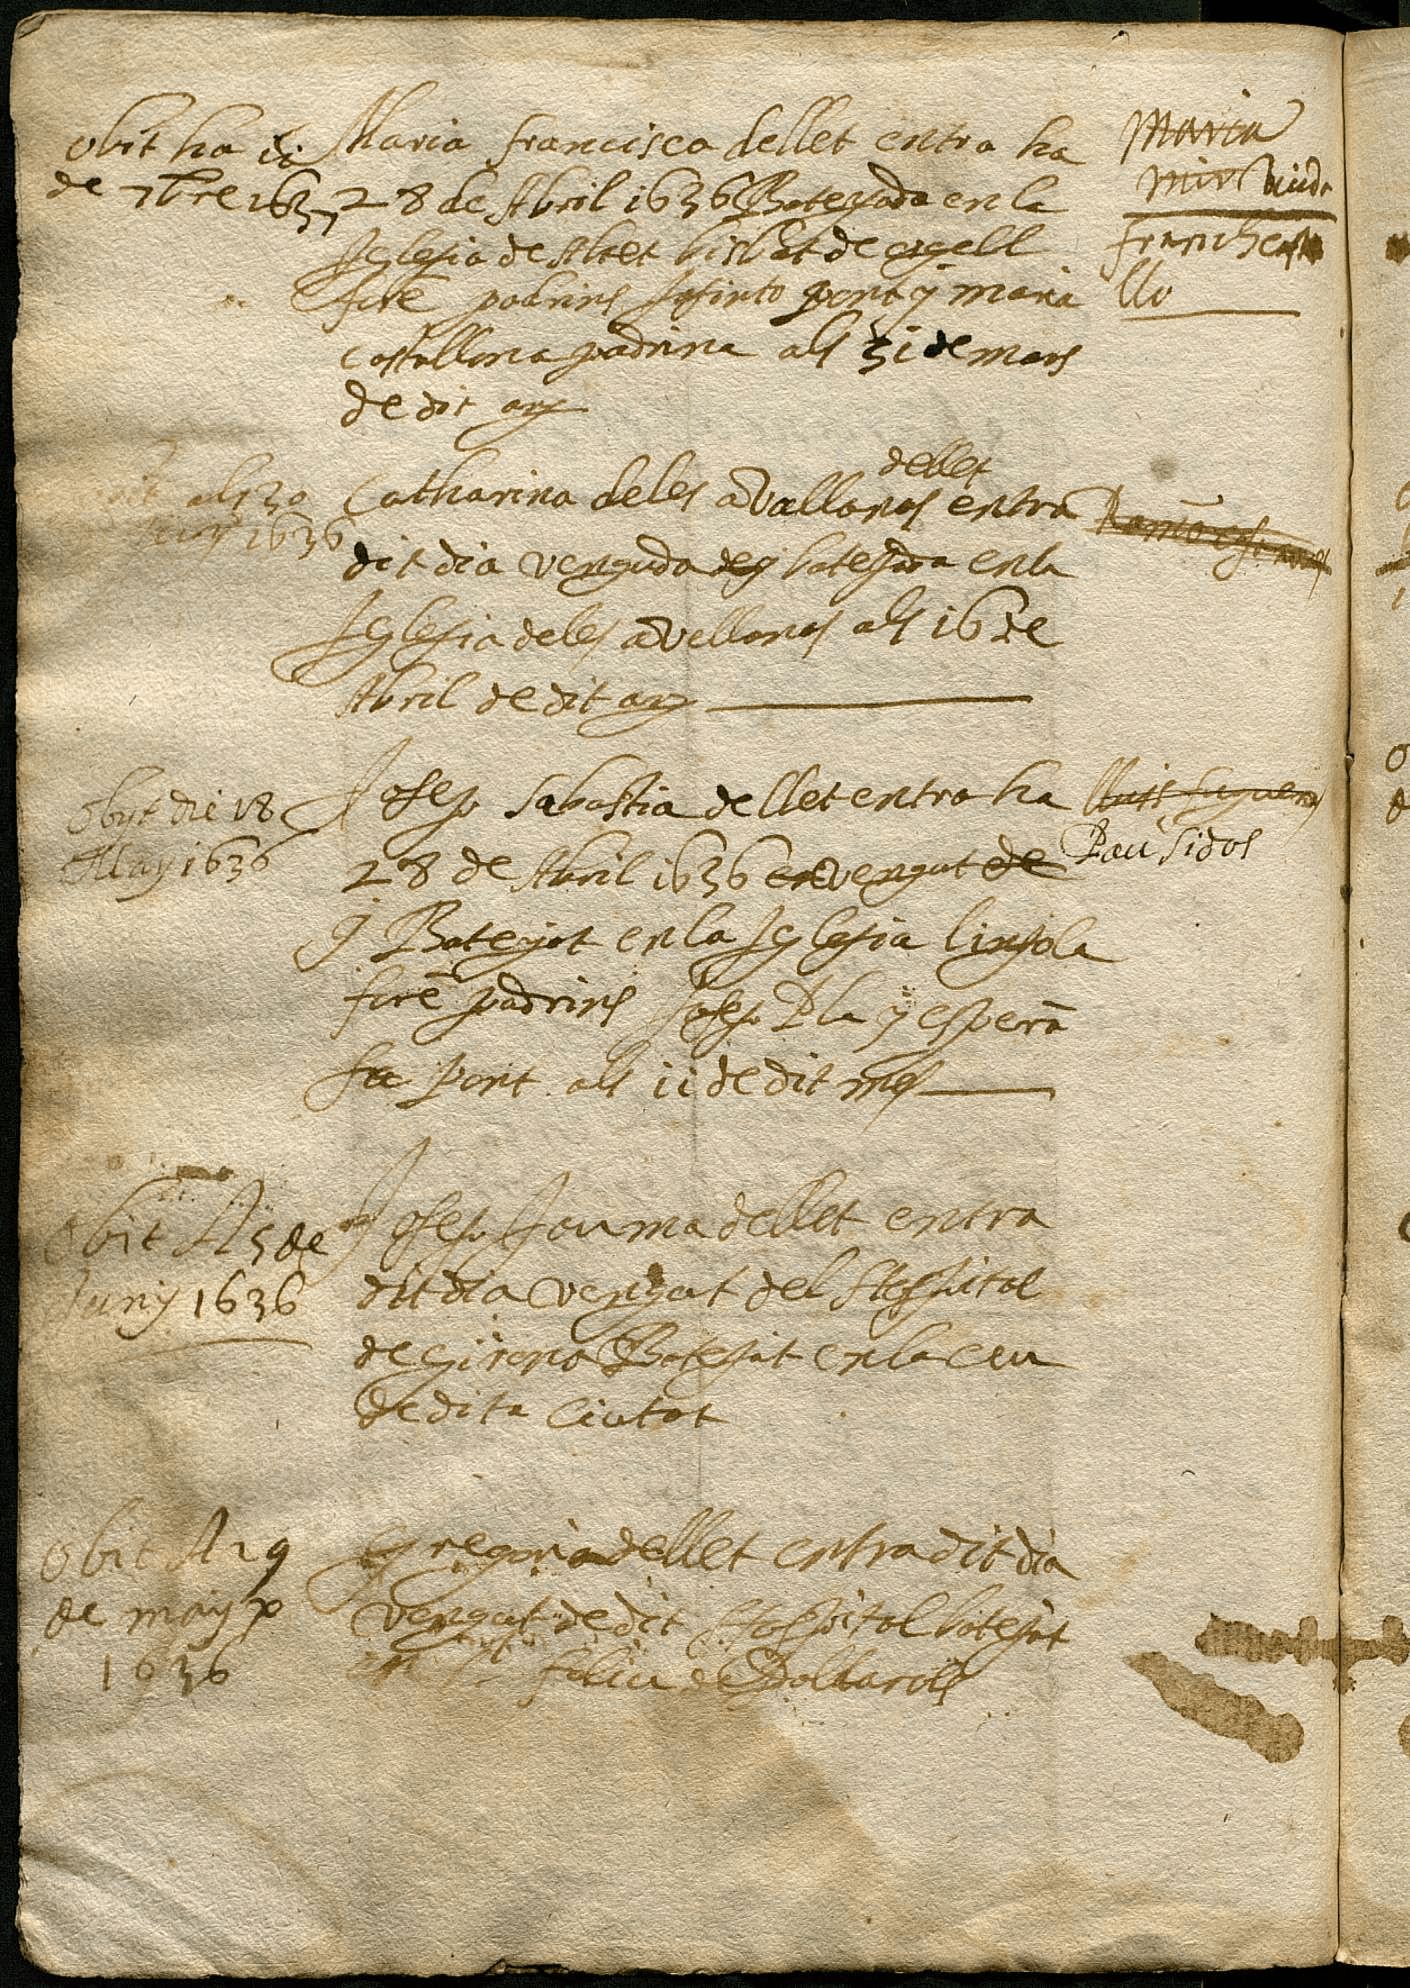 obit ha ii
de 7bre 1637
Maria francisca dellet entra ha
28 de Abril 1636 Bategada en la
Iglesia de Altet bisbat de urgell
fore padrins Jasinto pont y maria
castellona padrina als 31 de mars
de dit any
Maria
mir viuda
Franchea
llo
obit als 30
Juny 1636
dellet
Catharina deles avallanas entra
dit dia venguda bategada en la
Iglesia deles avellanas als 16 de
Abril de dit any
Ramo
Obyt die 18
May 1636
Josep Sabastia dellet entra ha
28 de Abril 1636 vengut de
y Bategat en la Iglesia linyola
fore padrins Josep Pla y espera
sa Pont als 11 de dit mes
lluis
Pau Sidos
Obit A 5 de
Juny 1636
Josep Jauma dellet entra
dit dia vengut del Hospital
de girona Batejat en la ceu
de dita Ciutat
Obit A 29
de maytx
1636
gregoria dellet entra dit dia
vengut de dit Hospital batejat
en St feliu de Pallarols